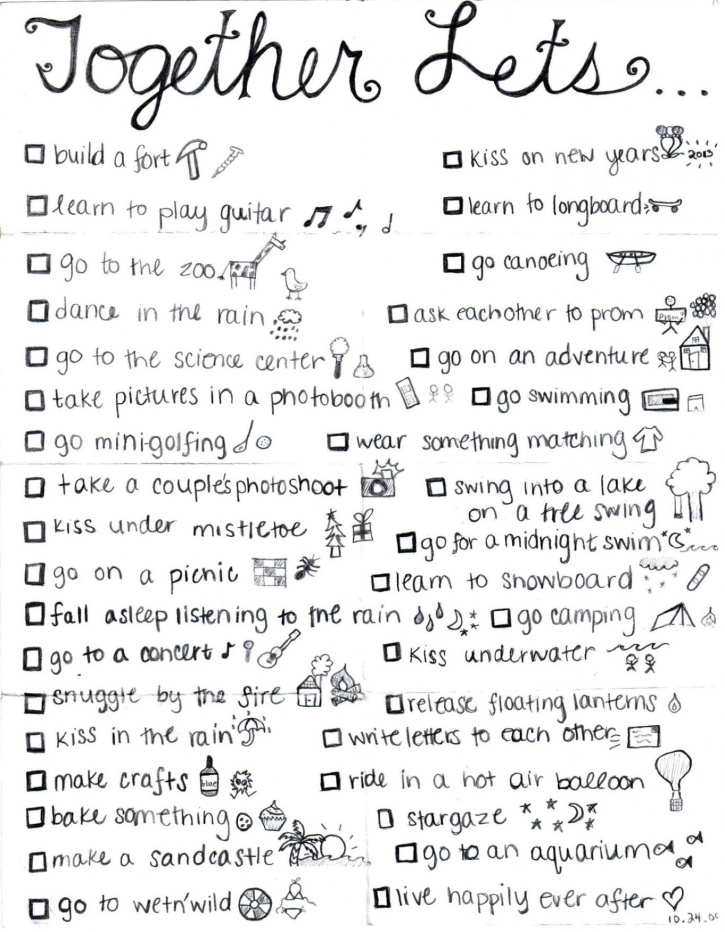 Together Lets...
build a fort
learn to play guitar
go to the zoo
dance in the rain
go to the science center
take pictures in a photobooth
go mini-golfing
take a couple's photoshoot
kiss under mistletoe
go on a picnic
fall asleep listening to the rain
go to a concert
snuggle by the fire
kiss in the rain
make crafts
glue
bake something
make a sandcastle
go to wet n' wild
kiss on new years
2013
learn to longboard
go canoeing
ask eachother to prom
prom?
go on an adventure
go swimming
wear something matching
swing into a lake
on a tree swing
go for a midnight swim
learn to snowboard
go camping
kiss underwater
release floating lanterns
write letters to each other
ride in a hot air balloon
stargaze
go to an aquarium
live happily ever after